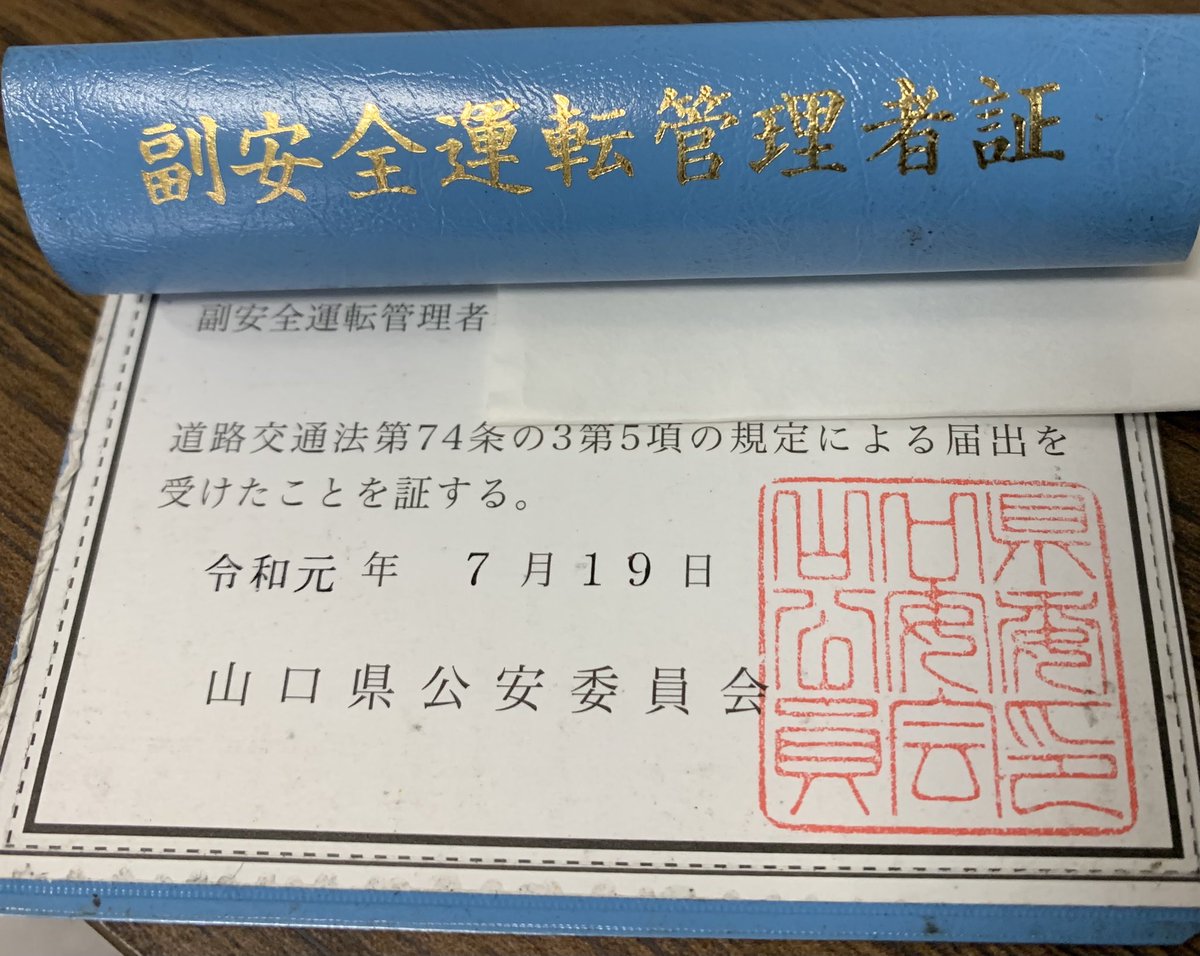 副安全運転管理者証
副安全運転管理者
道路交通法第74条の3第5項の規定による届出を
受けたことを証する。
令和元年 7月19日
山口県公安委員会
山口県
公安委
員会印